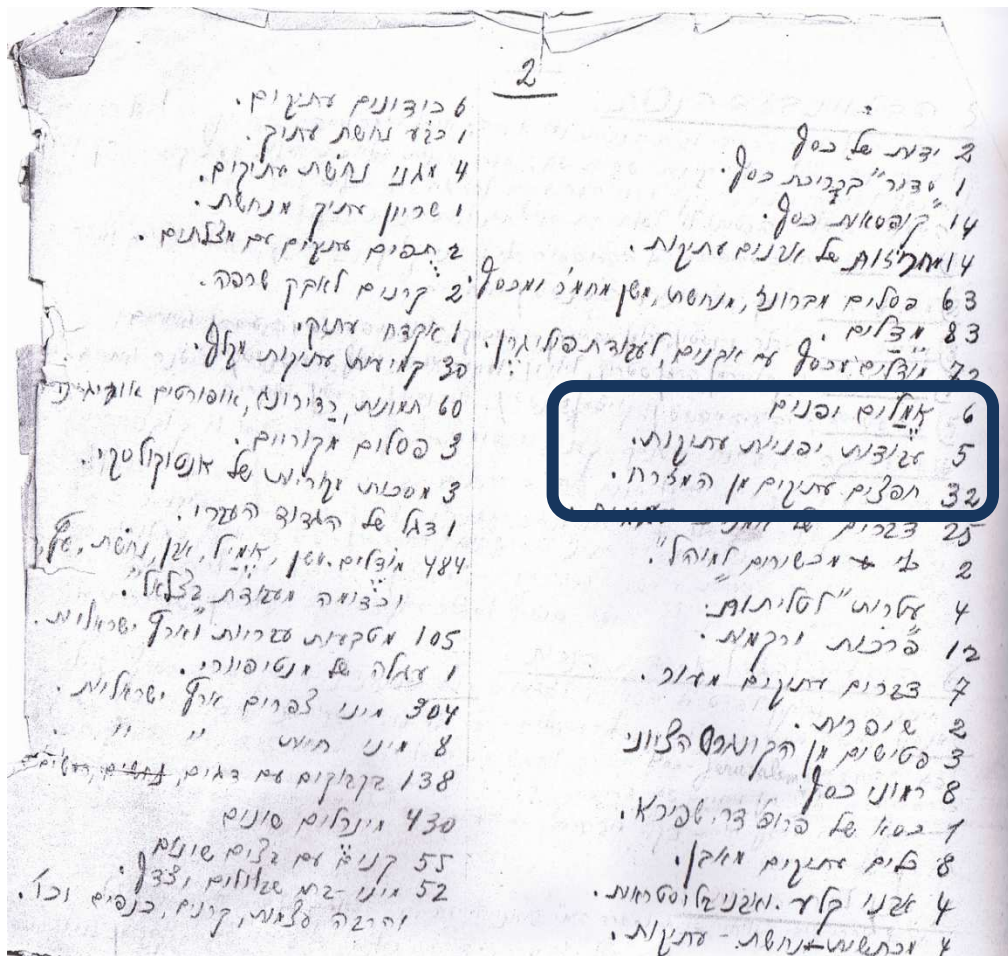 2
2 ידות של כסף
1 סדור בכריכת כסף.
14 קופסאות כסף.
14 מחרוזות של אבנים עתיקות.
63 פסלים מברונז, מנחשת, משן מחמר ומכסף
83 מדלים.
72 עם אבנים לעבודת פיליגרן
6 אמלים יפנים
5 עבודות יפניות עתיקות.
32 חפצים עתיקים מן המזרח.
25 דברים של
2 מכשירים למוהל"
4 עטרות "לטליתות.
12 פרכות ורקמות.
7 דברים עתיקים מעור.
2 שופרות.
3 פטישים מן הקונגרס הציוני
8 רמוני כסף.
1 כסא של פרופ' שפירא.
8 כלים עתיקים מאבן.
4 אבני קלע.
4 נחשת - עתיקות.
6 כידונים עתיקים.
1 נחשת עתיק.
4 מגני נחשת עתיקים.
1 שריון עתיק מנחשת.
2 תפים עתיקים עם מצלתים.
2 קרנים לאבק שרפה.
1 אקדח עתיק.
30 קמיעות עתיקות מקלף.
60 תמונות,
3 פסלים מקוריים.
3 מסכות מקוריות של אנטוקולסקי.
1 דגל של הגדוד העברי.
484 מודלים. משן, אמיל, אבן, נחשת,
וכדומה מעבודת בצלאל"
105 מטבעות עבריות וארץ ישראליות.
1 עגלה של מונטיפיורי.
304 מיני צפרים ארץ ישראליות.
8 מיני חיות " " .
138 בקבוקים עם דגים,
430 מינרלים שונים
55 קנים עם בצים שונים
52 מיני שבלולים וצדף.
והרבה עצמות, קרנים, כנפים וכו'.